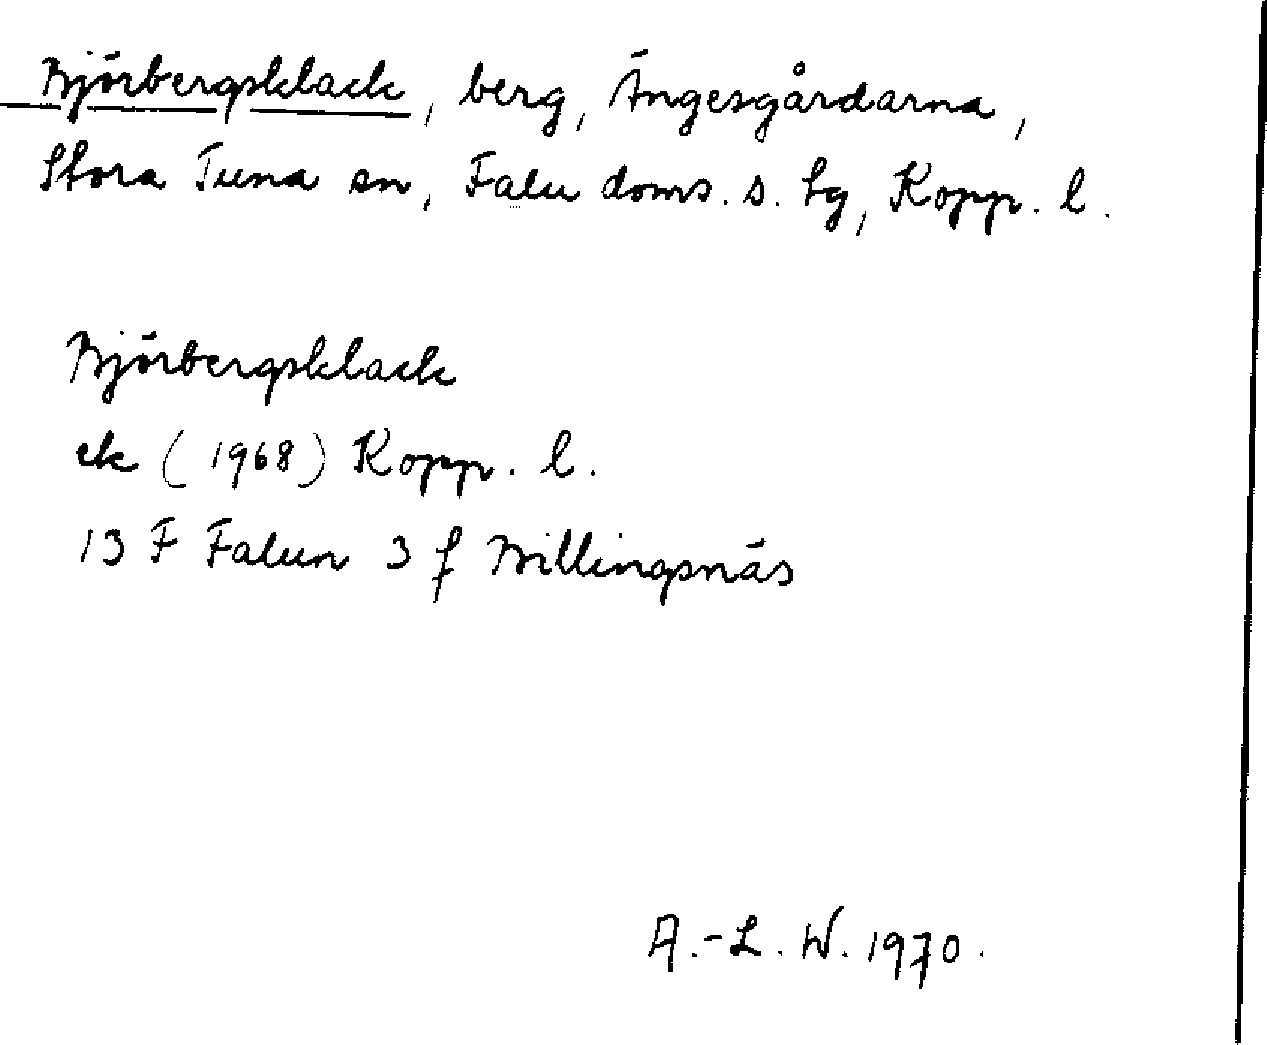 Björbergsklack, berg, Ängesgårdarna,
Stora Tuna sn, Falu doms. s. tg, Kopp. l.
Björbergsklack
ek (1968) Kopp. l.
13 F Falun 3 f Billingsnäs
A.-L. W. 1970.